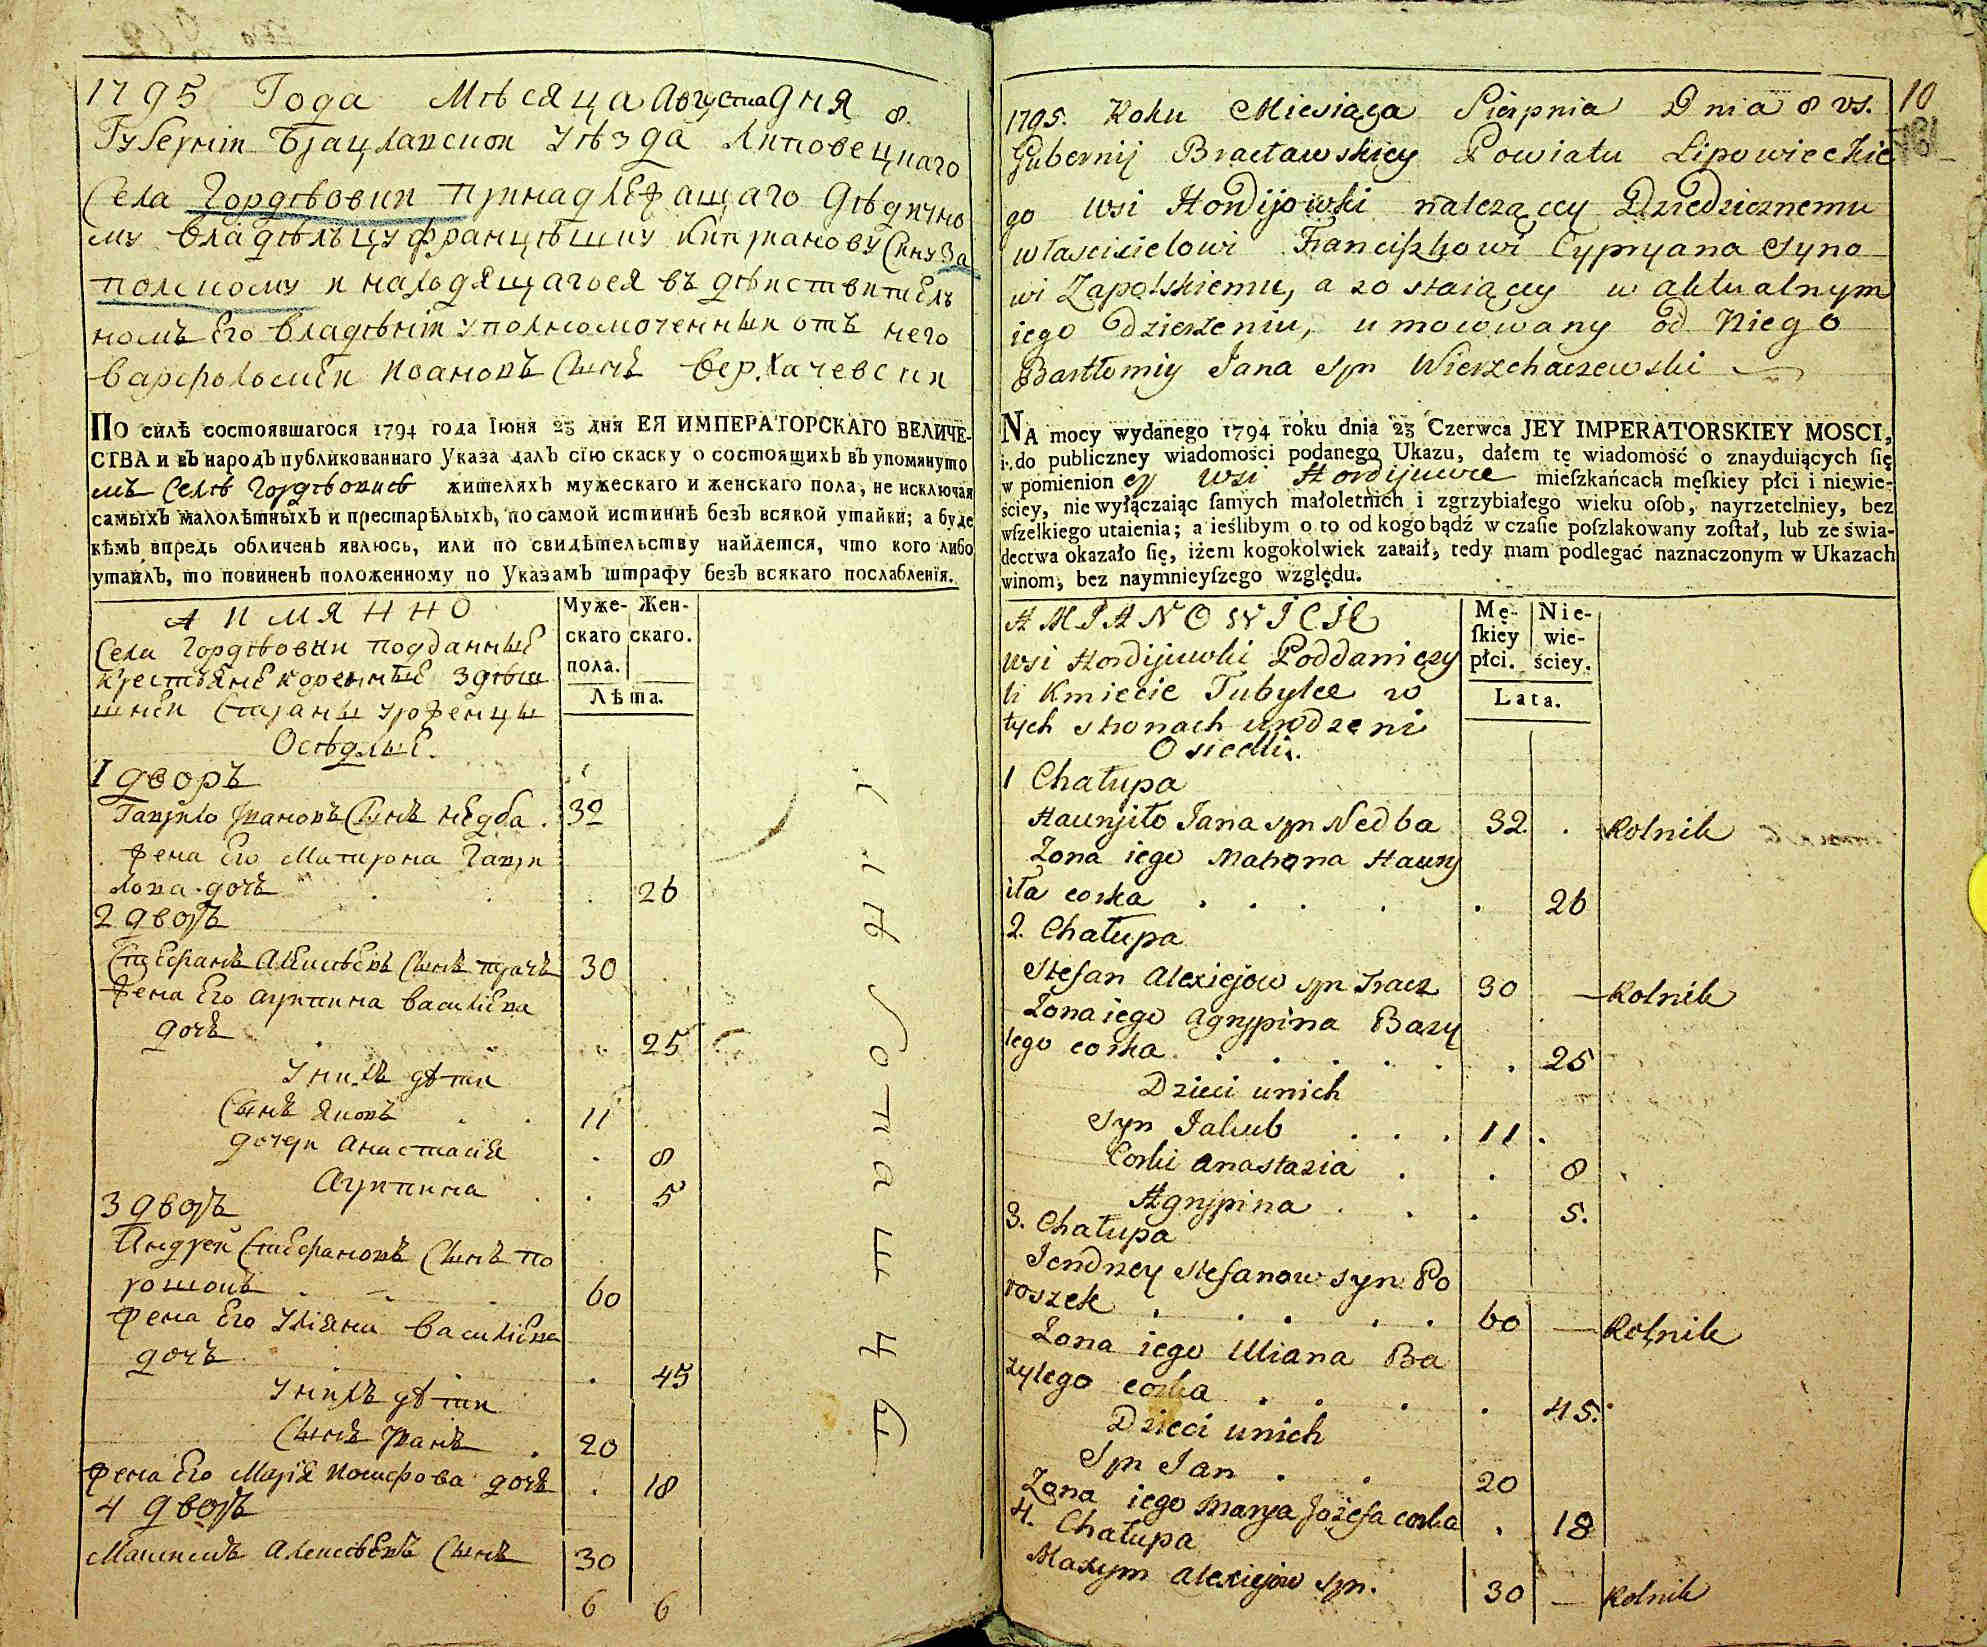 1795 Года Мѣсяца Августа Дня 8.
Губерніи Брацлавской уѣзда Липовецкаго
Села Гордѣовки принадлежащаго Дѣдично
му владѣльцу Францѣшку Кипрianову Сыну За
полскому и находящагося въ дѣиствитель
номъ его владѣніи уполномоченныи отъ него
Варфоломей Ивановъ Сынъ Верхачевски
ПО силѣ состоявшагося 1794 года Іюня 23 дня ЕЯ ИМПЕРАТОРСКАГО ВЕЛИЧЕ-
СТВА и въ народъ публикованнаго Указа далъ сію скаску о состоящихъ въ упомянуто
мъ Селѣ Гордѣовкѣ жителяхъ мужескаго и женскаго пола, не исключая
самыхъ малолѣтныхъ и престарѣлыхъ, по самой истиннѣ безъ всякой утайки; а буде
кѣмъ впредь обличенъ явлюсь, или по свидѣтельству найдется, что кого либо
утаилъ, то повиненъ положенному по Указамъ штрафу безъ всякаго послабленія.
А ИМЯННО
Села Гордѣовки подданные
крестьяне коренные здѣш
ней Стараны уроженцы
Осѣдлые.
Муже- Жен-
скаго скаго.
пола.
Лѣта.
1 дворъ
Гаврило Ивановъ Сынъ Недба . 32
жена Его Матрона Гаври
лова дочь 26
2 дворъ
Стефанъ Алексѣевъ Сынъ ткачъ 30
жена Его Агрипина Василіева
дочь 25
У нихъ дѣти
Сынъ Яковъ 11
дочери Анастасія 8
Агрипина 5
3 дворъ
Андрей Стефановъ Сынъ По
рошокъ 60
жена Его Уліяна Василіева
дочь 45
У нихъ дѣти
Сынъ Иванъ 20
жена Его Марія Иосифова дочь 18
4 дворъ
Максимъ Алексѣевъ Сынъ 30
6 6
10
1795. Roku Miesiąca Sierpnia Dnia 8 vs.
Gubernij Bracławskiey Powiatu Lipowieckie
go wsi Hordijowki nalczący Dziedzicznemu
właścicielowi Franciszkowi Cypryana Syno
wi Zapolskiemu, a zostaiący w aktualnym
iego dzierżeniu, umocowany od Niego
Bartłomiy Jana Syn Wierzchaczewski
NA mocy wydanego 1794 roku dnia 23 Czerwca JEY IMPERATORSKIEY MOSCI,
i do publiczney wiadomości podanego Ukazu, dałem tę wiadomość o znayduiących ſię
w pomienion ey wsi Hordijuwce mieſzkańcach męſkiey płci i niewie-
ściey, nie wyłączaiąc ſamych małoletnich i zgrzybiałego wieku oſob, nayrzetelniey, bez
wſzelkiego utaienia; a ieślibym o to od kogo bądź w czaſie poſzlakowany zoſtał, lub ze świa-
dectwa okazało ſię, iżem kogokolwiek zataił, tedy mam podlegać naznaczonym w Ukazach
winom, bez naymnieyſzego względu.
A MIANOWICIE
wsi Hordijuwki Poddani czy
li Kmiecie Tubylce w
tych stronach urodzeni
Osiedli.
Mę- Nie-
ſkiey wie-
płci. ściey.
Lata.
1 Chałupa
Hawryło Jana syn Nedba 32. Rolnik
Zona iego Matrona Hawry
iła corka 26
2. Chałupa
Stefan Alexiejow syn Tracz 30 — Rolnik
Zona iego Agrypina Bazy
lego corka 25
Dzieci u nich
Syn Jakub 11
Corki Anastazia 8
Agrypina 5.
3. Chałupa
Jendrzey Stefanow Syn Po
roszek 60 — Rolnik
Zona iego Uliana Ba
zylego corka 45.
Dzieci u nich
Syn Jan 20
Zona iego Marya Jozefa corka 18
4. Chałupa
Maxym Alexiejow Syn. 30 — Rolnik